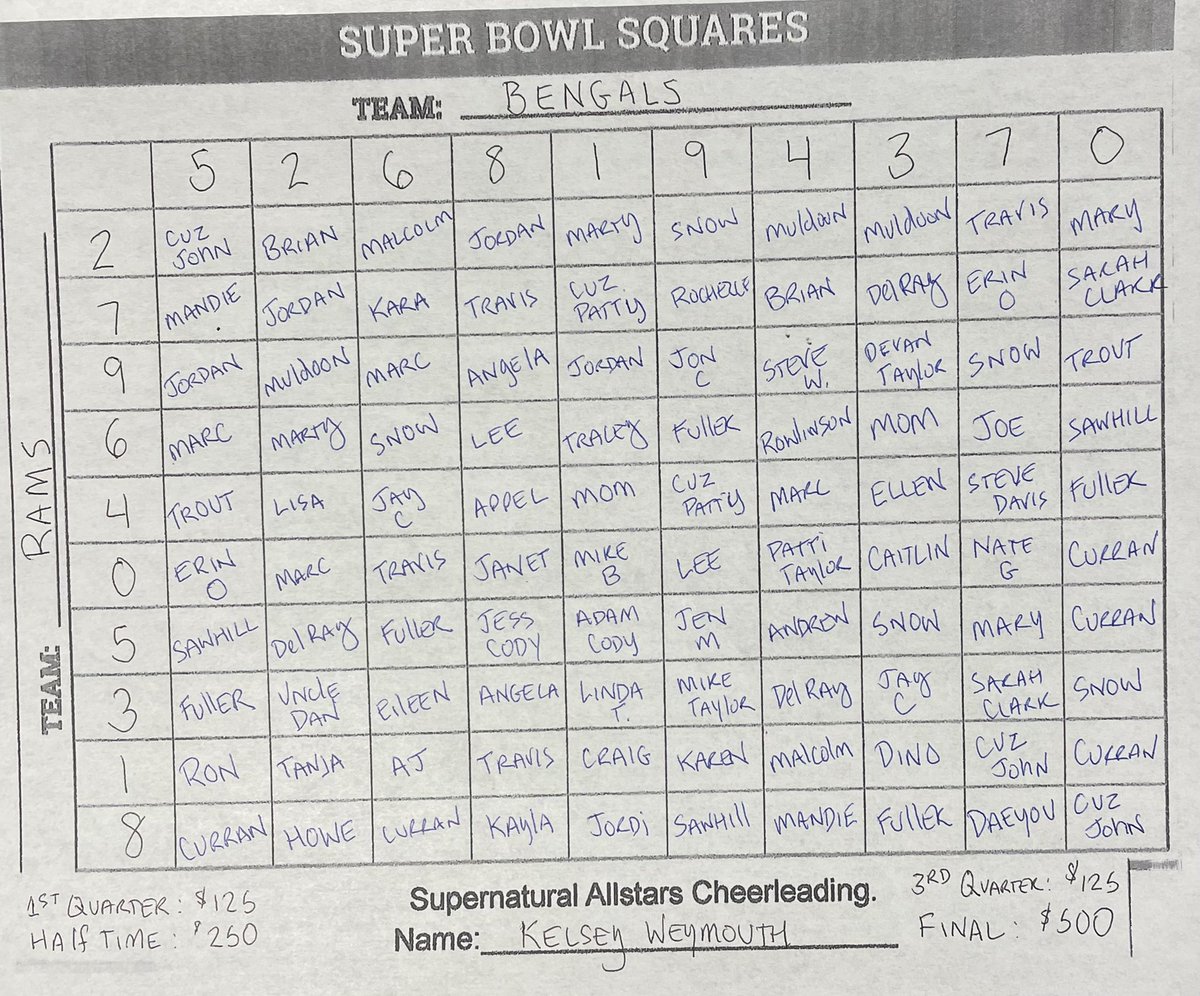 SUPER BOWL SQUARES
TEAM: BENGALS
5 2 6 8 1 9 4 3 7 0
TEAM: RAMS
2 CUZ JOHN BRIAN MALCOLM JORDAN MARTY SNOW Muldoon Muldoon TRAVIS MARY
7 MANDIE JORDAN KARA TRAVIS CUZ PATTY ROCHELLE BRIAN DelRAy ERIN O SARAH CLARK
9 JORDAN Muldoon MARC ANGELA JORDAN JON C STEVE W. DEVAN TAYLOR SNOW TROUT
6 MARC MARTY SNOW LEE TRACEY FULLER ROWlINSON MOM JOE SAWHILL
4 TROUT LISA JAY C APPEL MOM CUZ PATTY MARC ELLEN STEVE DAVIS FULLER
0 ERIN O MARC TRAVIS JANET MIKE B LEE PATTI TAYLOR CAITLIN NATE G CURRAN
5 SAWHILL DelRAy FULLER JESS CODY ADAM CODY JEN M ANDREW SNOW MARY CURRAN
3 FULLER UNCLE DAN EILEEN ANGELA LINDA T. MIKE TAYLOR DelRAy JAY C SARAH CLARK SNOW
1 RON TANJA AJ TRAVIS CRAIG KAREN MALCOLM DINO CUZ JOHN CURRAN
8 CURRAN HOWE CURRAN KAYLA JORDI SAWHILL MANDIE FULLER DAEYOU CUZ JOHN
1ST QUARTER: $125
HALF TIME: $250
Supernatural Allstars Cheerleading.
Name: KELSEY WEYMOUTH
3RD QUARTER: $125
FINAL: $500